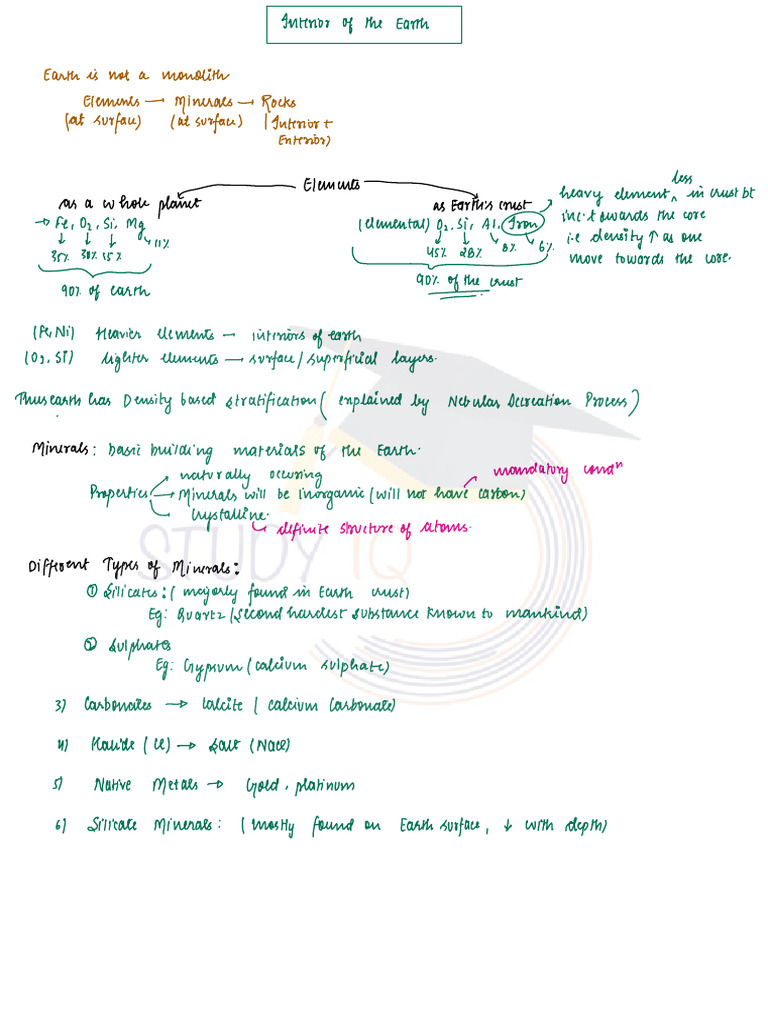 Interior of the Earth
Earth is not a monolith
Elements → Minerals → Rocks
(at surface) (at surface) (Interior +
Exterior)
Elements
as a whole planet
→ Fe, O2, Si, Mg
35% 30% 15% 11%
90% of earth
as Earth's crust
(elemental) O2, Si, Al, Iron
45% 28% 8% 6%
90% of the crust
less
heavy element ^ in crust bt
inc.t towards the core
i.e density ↑ as one
move towards the core.
(Fe, Ni) Heavier elements → interiors of earth
(O2, Si) lighter elements → surface / superficial layers.
Thus earth has Density based stratification ( explained by Nebular Accreation Process)
Minerals: basic building materials of the Earth.
naturally occuring
mandatory condn
Properties → Minerals will be inorganic (will not have carbon)
Crystalline.
definite structure of atoms.
STUDY IQ
Different Types of Minerals:
① Silicates: ( majorly found in Earth crust)
Eg: Quartz (second hardest substance known to mankind)
② Sulphates
Eg: Gypsum (calcium sulphate)
3) Carbonates → Calcite ( calcium carbonate)
4) Halide (Cl) → Salt (NaCl)
5) Native Metals → Gold, platinum
6) Silicate Minerals: ( mostly found on Earth surface, ↓ with depth)